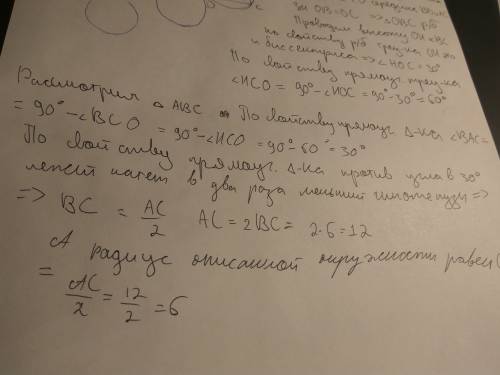 середина
на OB=OC => △OBC р/б
Проводим высоту OH к BC
по свойству р/б треуг-ка OH это
и биссектриса => ∠HOC = 30°
По свойству прямоуг. треуг-ка
∠HCO = 90° - ∠HOC = 90° - 30° = 60°
Рассмотрим △ ABC По свойству прямоуг. △-ка ∠BAC =
= 90° - ∠BCO = 90° - ∠HCO = 90° - 60° = 30°
По свойству прямоуг. △-ка против угла в 30°
лежит катет в два раза меньший гипотенузы =>
=> BC = AC/2 AC = 2BC = 2·6 = 12
А радиус описанной окружности равен
= AC/2 = 12/2 = 6